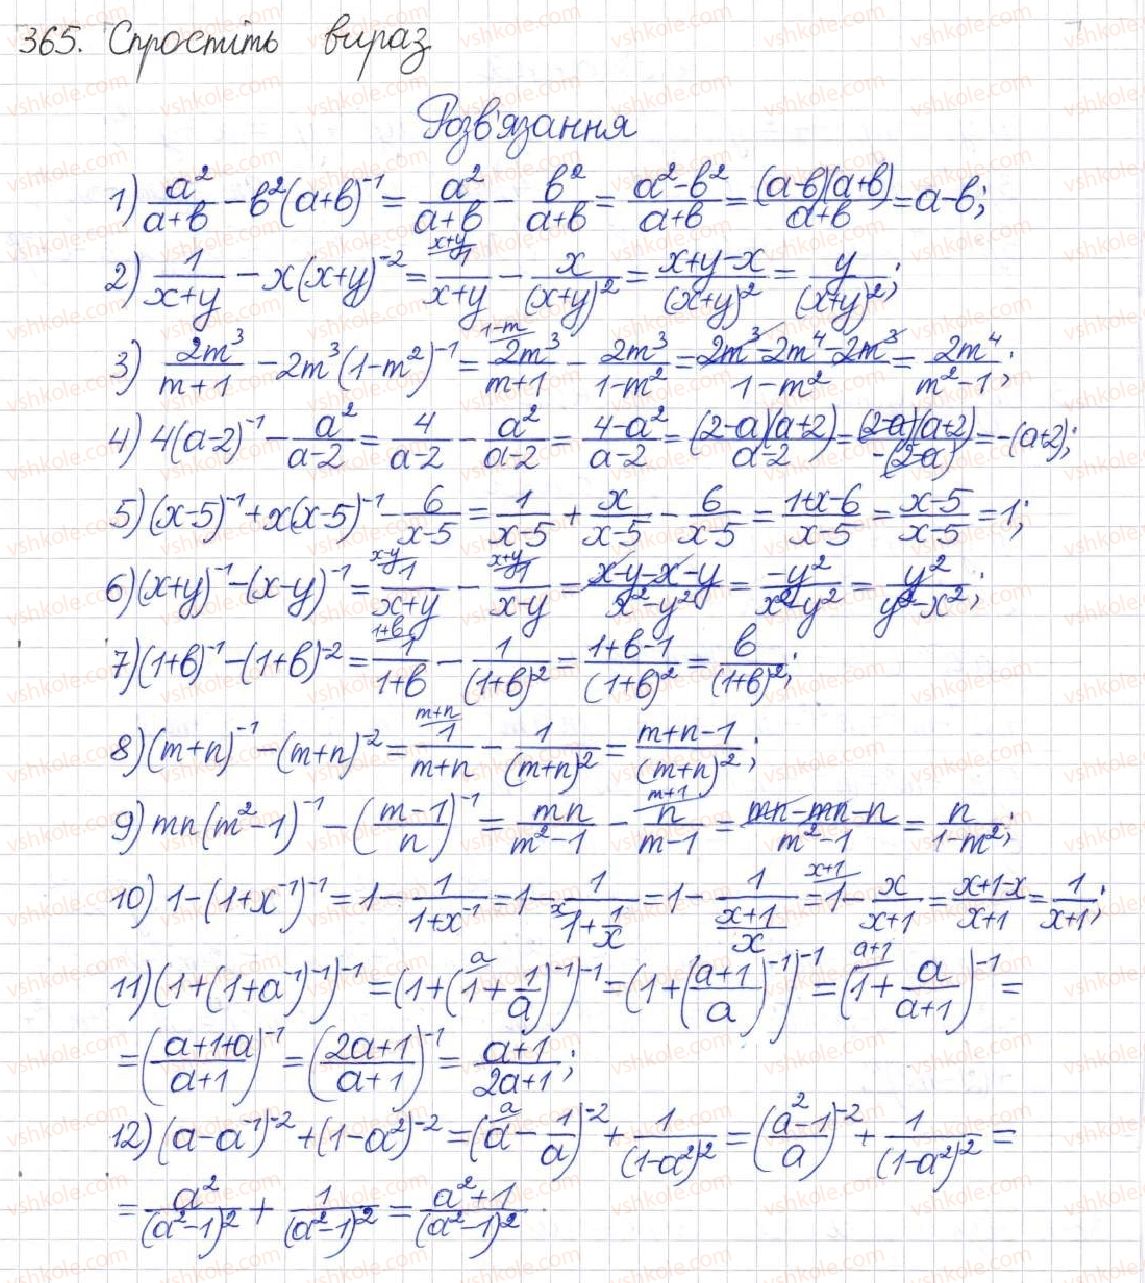 365. Спростіть вираз
Розв'язання
1) a²/(a+b) - b²(a+b)⁻¹ = a²/(a+b) - b²/(a+b) = (a²-b²)/(a+b) = (a-b)(a+b)/(a+b) = a-b;
2) 1/(x+y) - x(x+y)⁻² = ˣ⁺ʸ 1/(x+y) - x/(x+y)² = (x+y-x)/(x+y)² = y/(x+y)²;
3) 2m³/(m+1) - 2m³(1-m²)⁻¹ = ¹⁻ᵐ 2m³/(m+1) - 2m³/(1-m²) = (2m³-2m⁴-2m³)/(1-m²) = 2m⁴/(m²-1);
4) 4(a-2)⁻¹ - a²/(a-2) = 4/(a-2) - a²/(a-2) = (4-a²)/(a-2) = (2-a)(a+2)/(a-2) = (2-a)(a+2)/-(2-a) = -(a+2);
5) (x-5)⁻¹ + x(x-5)⁻¹ - 6/(x-5) = 1/(x-5) + x/(x-5) - 6/(x-5) = (1+x-6)/(x-5) = (x-5)/(x-5) = 1;
6) (x+y)⁻¹ - (x-y)⁻¹ = ˣ⁻ʸ 1/(x+y) - ˣ⁺ʸ 1/(x-y) = (x-y-x-y)/(x²-y²) = -y²/(x²-y²) = y²/(y²-x²);
7) (1+b)⁻¹ - (1+b)⁻² = ¹⁺ᵇ 1/(1+b) - 1/(1+b)² = (1+b-1)/(1+b)² = b/(1+b)²;
8) (m+n)⁻¹ - (m+n)⁻² = ᵐ⁺ⁿ 1/(m+n) - 1/(m+n)² = (m+n-1)/(m+n)²;
9) mn(m²-1)⁻¹ - ((m-1)/n)⁻¹ = mn/(m²-1) - ᵐ⁺¹ n/(m-1) = (mn-mn-n)/(m²-1) = n/(1-m²);
10) 1-(1+x⁻¹)⁻¹ = 1 - 1/(1+x⁻¹) = 1 - 1/(ˣ 1+1/x) = 1 - 1/((x+1)/x) = ˣ⁺¹ 1 - x/(x+1) = (x+1-x)/(x+1) = 1/(x+1);
11) (1+(1+a⁻¹)⁻¹)⁻¹ = (1+(ᵃ 1+1/a)⁻¹)⁻¹ = (1+((a+1)/a)⁻¹)⁻¹ = (ᵃ⁺¹ 1+a/(a+1))⁻¹ =
= ((a+1+a)/(a+1))⁻¹ = ((2a+1)/(a+1))⁻¹ = (a+1)/(2a+1);
12) (a-a⁻¹)⁻² + (1-a²)⁻² = (ᵃ a - 1/a)⁻² + 1/(1-a²)² = ((a²-1)/a)⁻² + 1/(1-a²)² =
= a²/(a²-1)² + 1/(a²-1)² = (a²+1)/(a²-1)².
vshkole.com